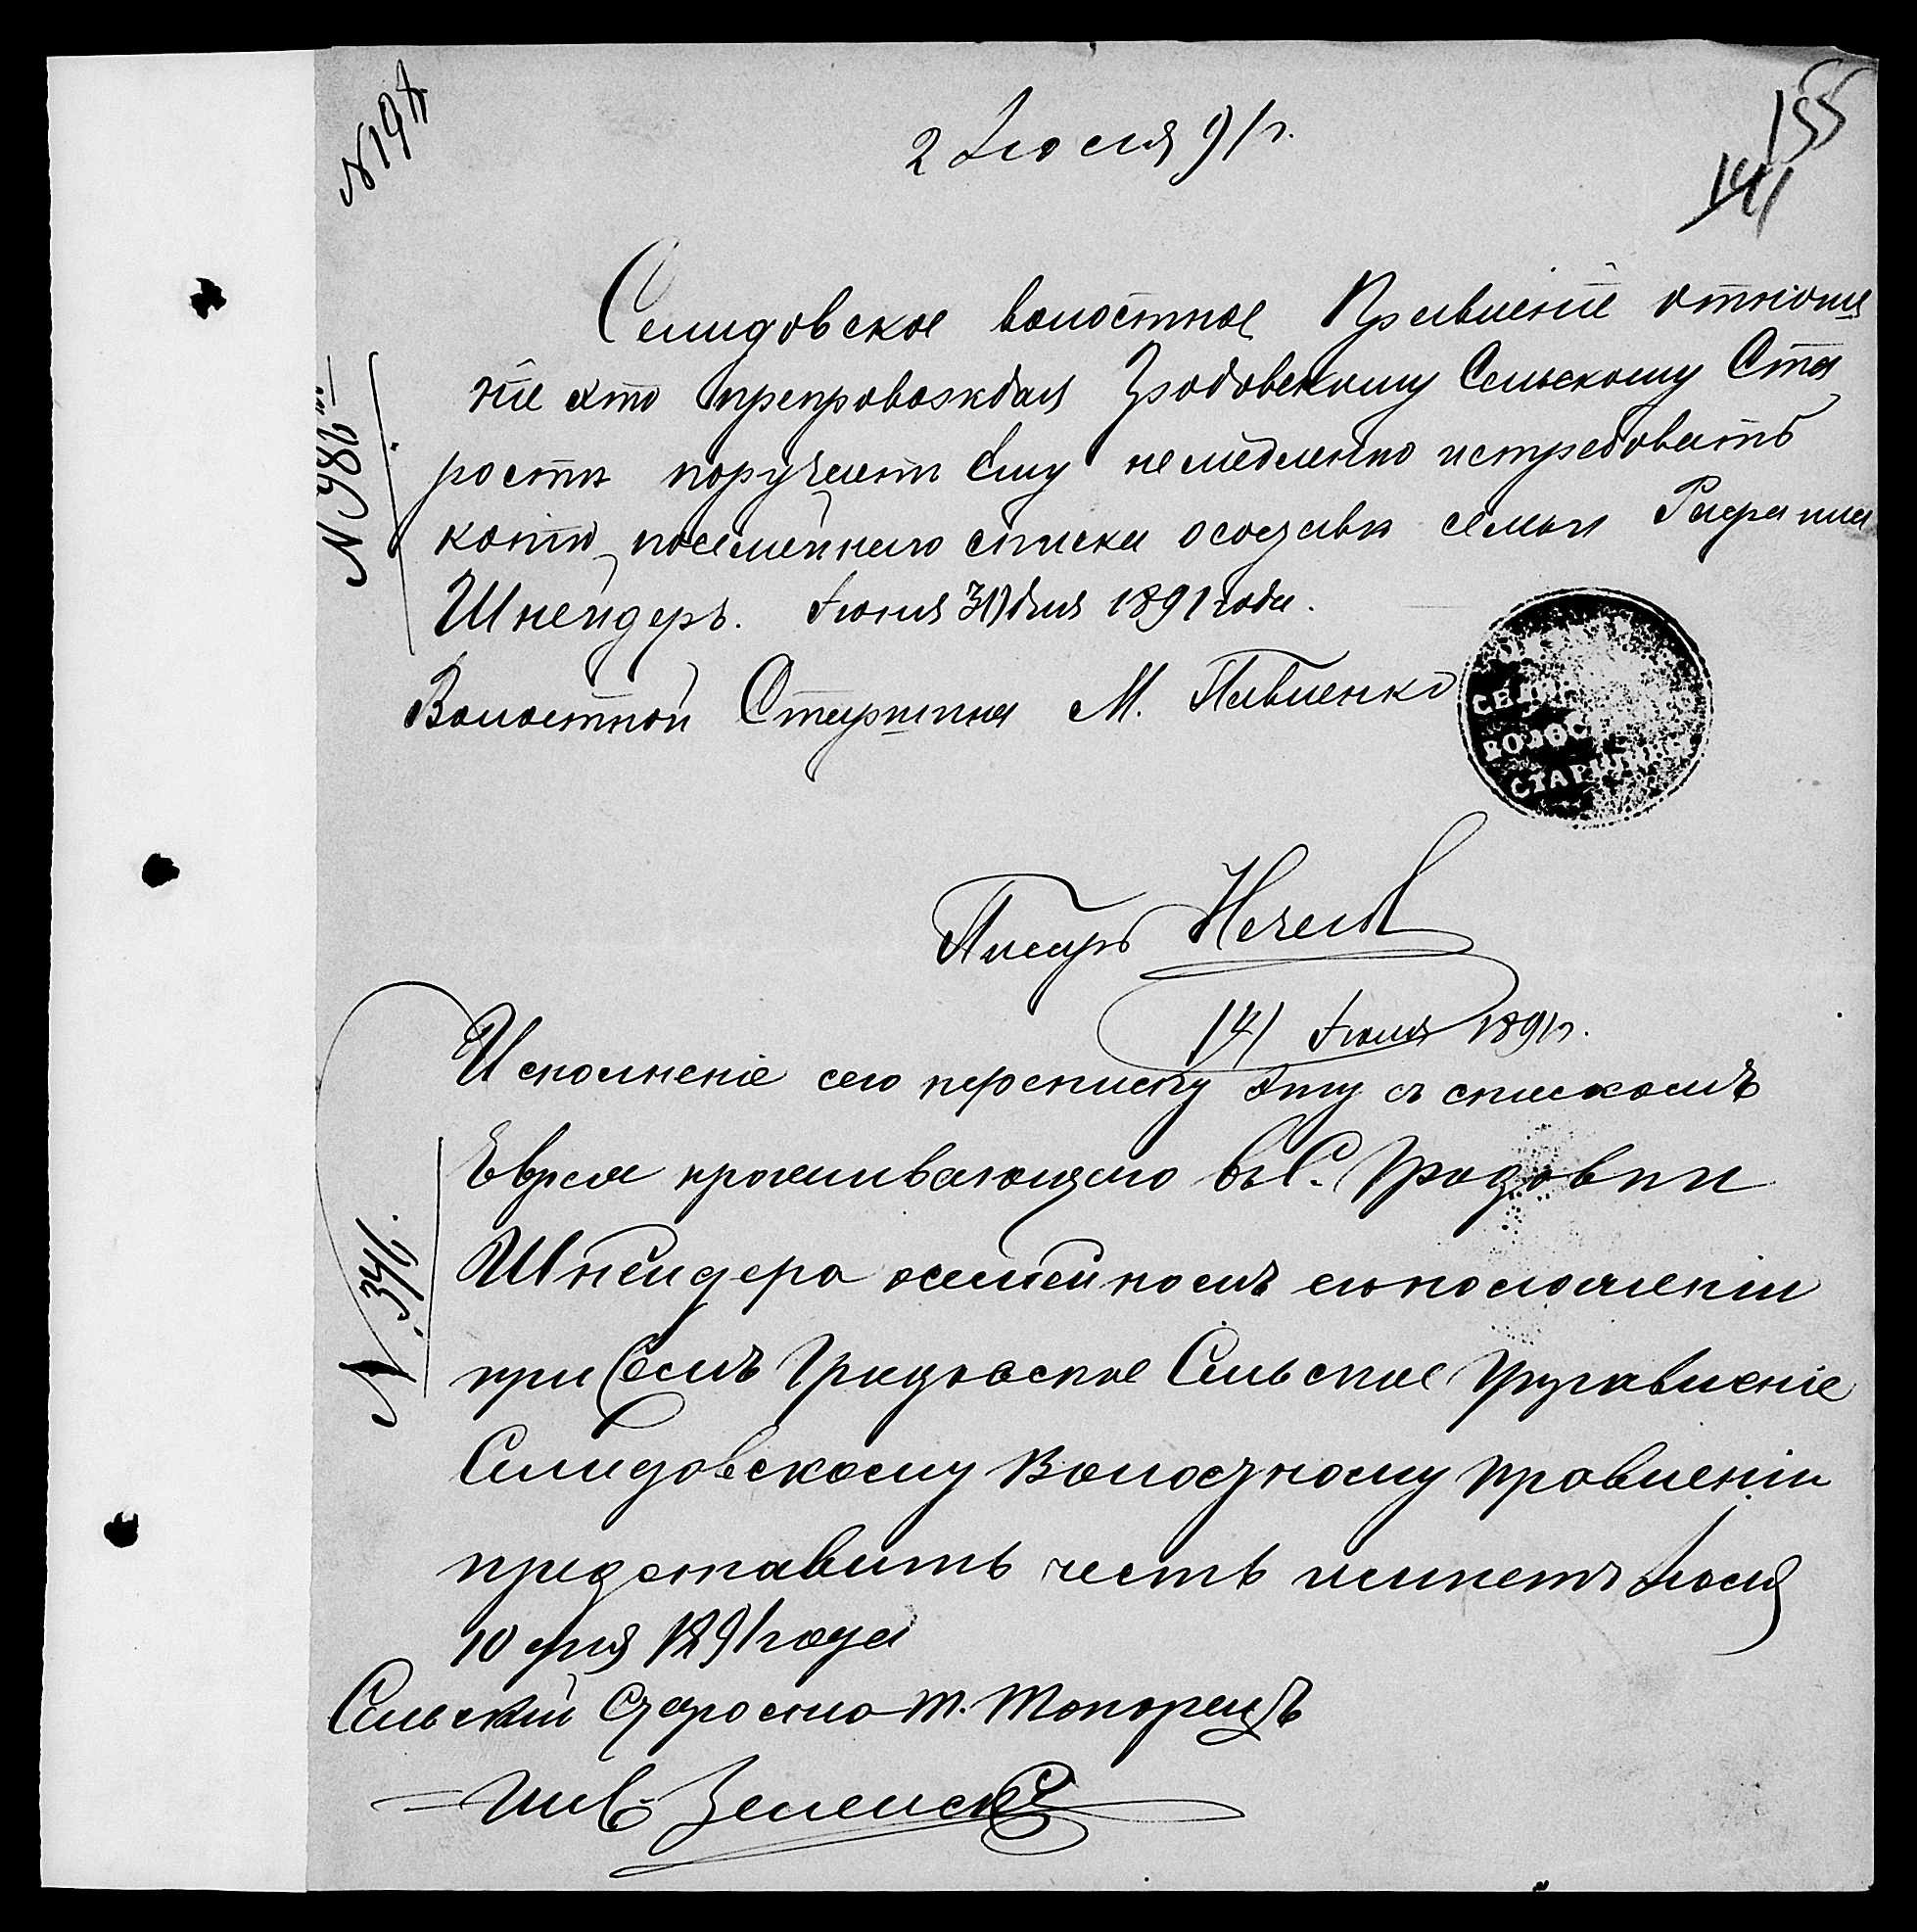 № 194
2 Июля 91 г.
155
141
Селидовское волостное Правленіе отноше
ніе это препровождая Гродовскому Сельскому Ста
№ 986
ростѣ поручаетъ ему немедленно истребовать
копію посемейнаго списка о составѣ семьи
Шнейдеръ. Іюня 30 дня 1891 года.
Волостной Старшина М. Павленко
ВОЛОС
СТАРШИНЫ
Писарь Нечаев
14 Іюля 1891 г.
Исполненіе сего переписку эту съ спискомъ
Еврея проживающаго въ С. Гродовки
Шнейдера осемейномъ его положеніи
№ 346.
при семъ Гродовское Сельское Управленіе
Селидовскому Волостному правленіи
представить честь имѣетъ Июля
10 дня 1891 года
Сельскій Староста Т. Топорецъ